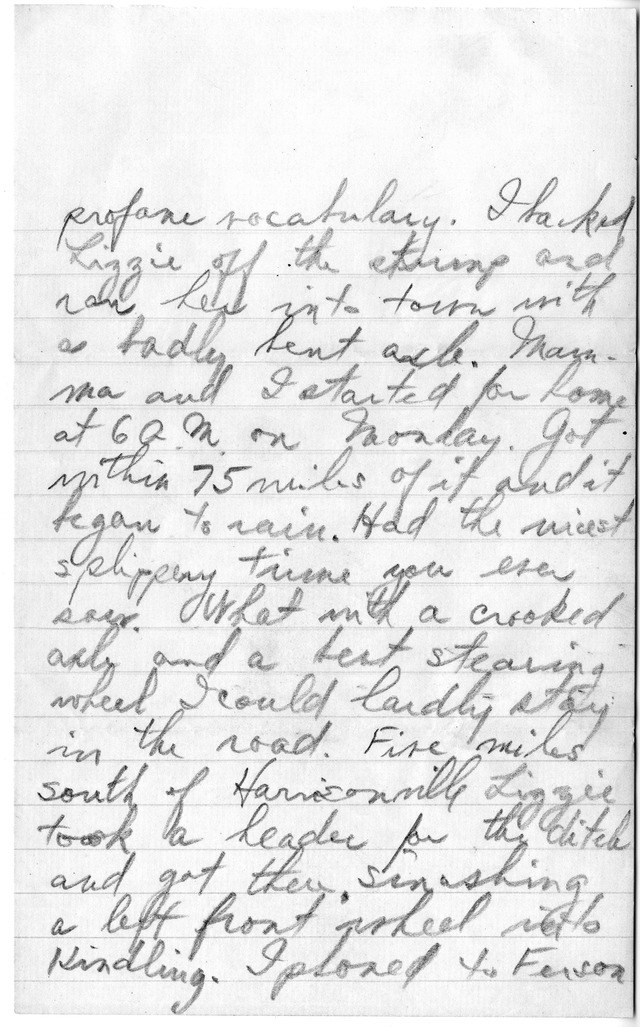 profane vocabulary. I backed
Lizzie off the stump and
ran her into town with
a badly bent axle. Mam-
ma and I started for home
at 6 A.M. on Monday. Got
within 75 miles of it and it
began to rain. Had the nicest
slippery time you ever
saw. What with a crooked
axle and a bent stearing
wheel I could hardly stay
in the road. Five miles
south of Harrisonville Lizzie
took a header for the ditch
and got there, smashing
a left front wheel into
Kindling. I phoned to Ferson